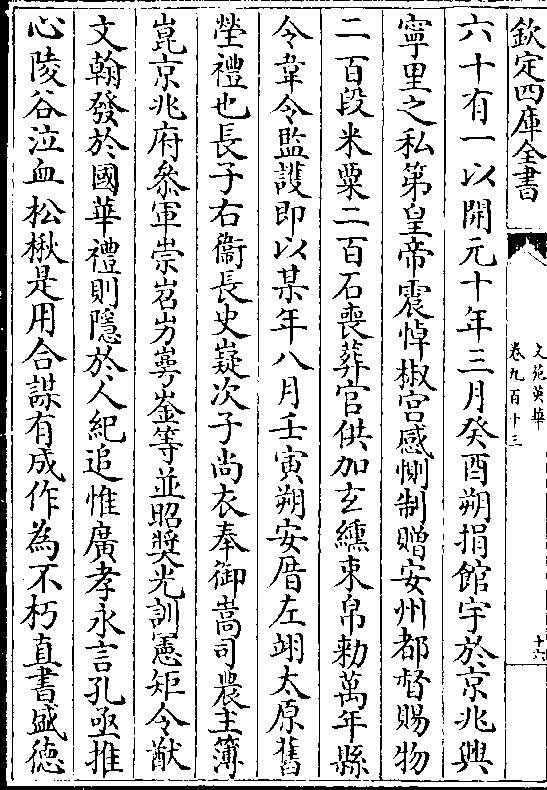 欽定四庫全書
文苑英華
卷九百十三
十六
六十有一以開元十年三月癸酉朔捐館宇於京兆興
寧里之私第皇帝震悼椒宮感惻制贈安州都督賜物
二百段米粟二百石喪葬官供加玄纁束帛勅萬年縣
令韋令監護即以某年八月壬寅朔安厝左翊太原舊
塋禮也長子右衞長史嶷次子尚衣奉御嵩司農主簿
崑京兆府叅軍崇岧岃崿崟等並昭奬光訓憲矩令猷
文翰發於國華禮則隱於人紀追惟廣孝永言孔亟推
心陵谷泣血松楸是用合謀有成作為不朽直書盛德